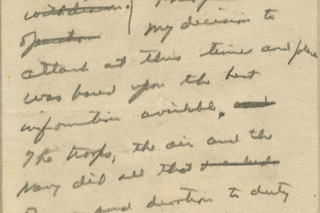 withdrawn.
My decision to
attack at this time and place
was based upon the best
information available, and
The troops, the air and the
Navy did all that
and devotion to duty